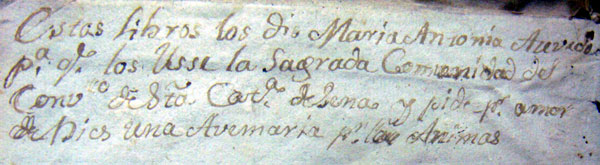 Estos libros los dio Maria Antonia Azevedo
p.a q.e los Usse la Sagrada Comunidad del
Conv.to de Sta. Cat.a de Sena y pide p.r amor
de Dios una Avemaria p.r las Animas